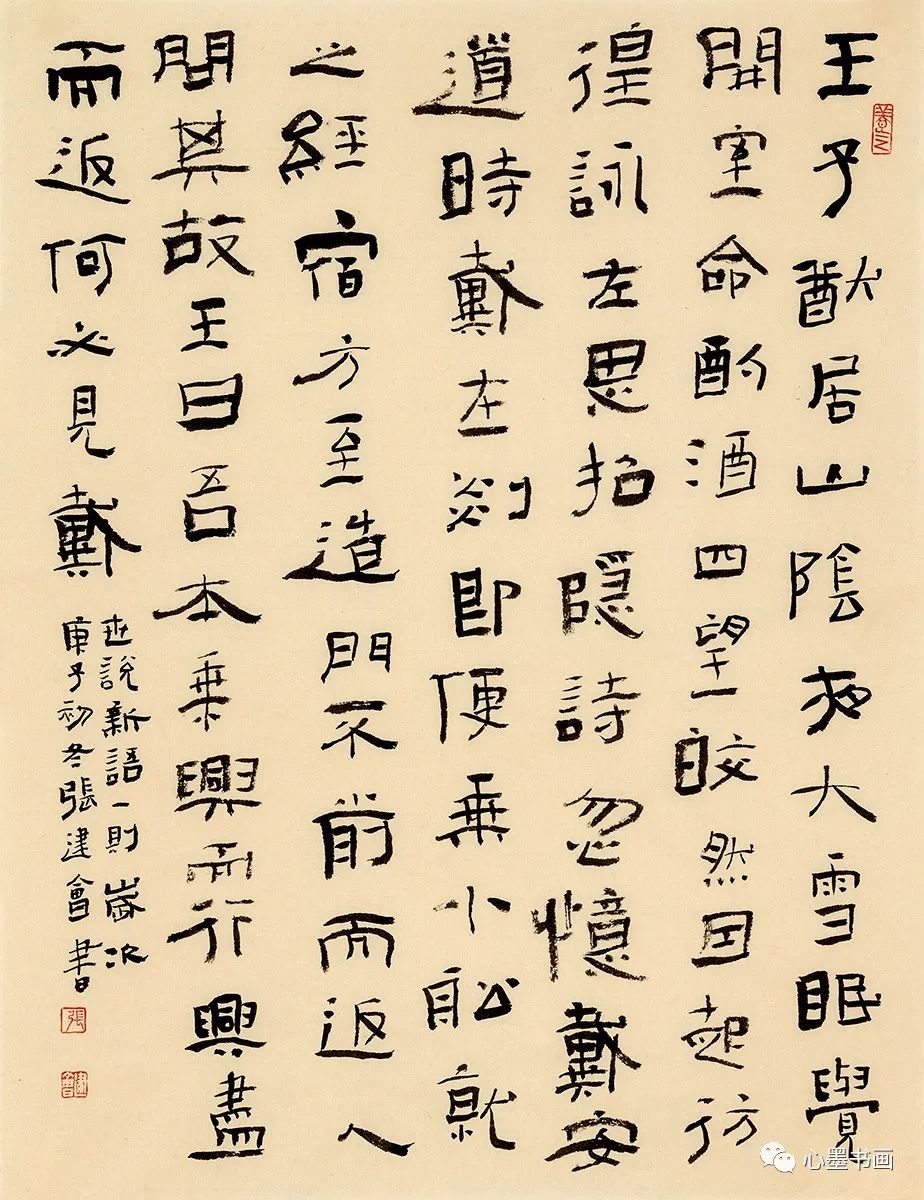 王子猷居山陰夜大雪眠覺
開室命酌酒四望皎然因起彷
徨詠左思招隱詩忽憶戴安
道時戴在剡即便乘小船就
之經宿方至造門不前而返人
問其故王曰吾本乘興而行興盡
而返何必見戴
世說新語一則歲次
庚子初冬張建會書
張
建會
心墨书画